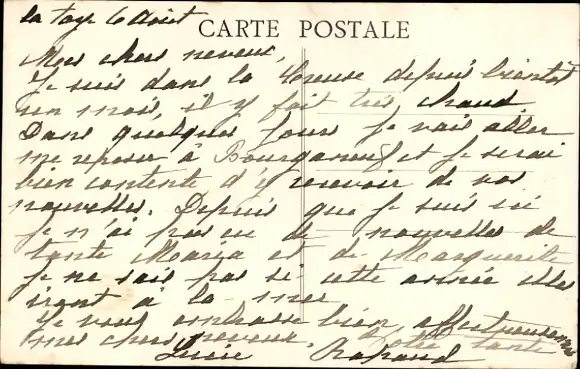 la tay 6 Août
CARTE POSTALE
Mes chers neveux,
Je suis dans la Creuse depuis bientôt
un mois, il y fait très chaud.
Dans quelques jours je vais aller
me reposer à Bourganeuf et je serai
bien contente d'y recevoir de vos
nouvelles. Depuis que je suis ici
je n'ai pas eu de nouvelles de
tante Maria et de Marguerite
je ne sais pas si cette année elles
iront a la mer
Je vous embrasse bien affectueusement
mes chers neveux. Votre tante
Lucie